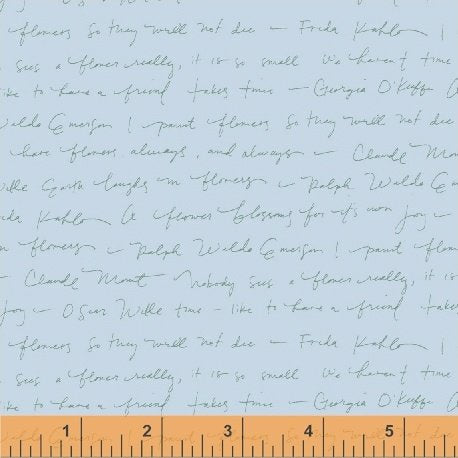 flowers so they will not die – Frida Kahlo I
sees a flower really, it is so small we haven't time
like to have a friend takes time – Georgia O'Keeffe
Waldo Emerson I paint flowers so they will not die
have flowers always, and always – Claude Mon
Wilde Earth laughs in flowers – Ralph Waldo Em
Frida Kahlo A flower blossoms for its own joy –
in flowers – Ralph Waldo Emerson I paint flow
– Claude Monet Nobody sees a flower really, it is
joy – Oscar Wilde time – like to have a friend takes
flowers so they will not die – Frida Kahlo I
sees a flower really, it is so small we haven't time
like to have a friend takes time – Georgia O'Keeffe
1 2 3 4 5